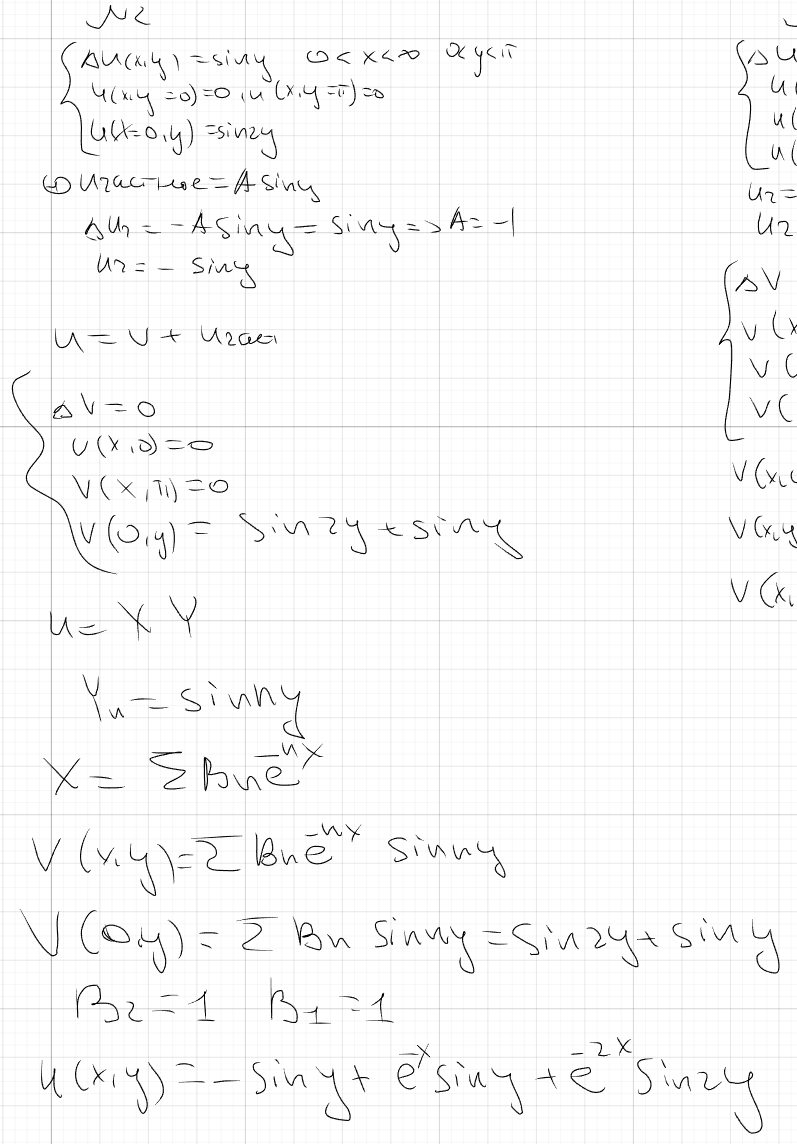 №2
Δu(x,y) = siny 0<x<∞ 0<y<π
u(x,y=0)=0, u(x,y=π)=0
u(x=0,y) = sin2y
① uчастное = A siny
Δuч = -A siny = siny => A = -1
uч = - siny
u = v + uчаст
ΔV = 0
V(x,0) = 0
V(x,π) = 0
V(0,y) = sin2y + siny
u = X Y
Yn = sin ny
X = Σ Bn e^-nx
V(x,y) = Σ Bn e^-nx sin ny
V(0,y) = Σ Bn sin ny = sin2y + siny
B2 = 1 B1 = 1
u(x,y) = - siny + e^-x siny + e^-2x sin2y
Δu
u(
u(
u2 =
u2
ΔV
V(x
V(
V(
V(x,
V(x,y
V(x,